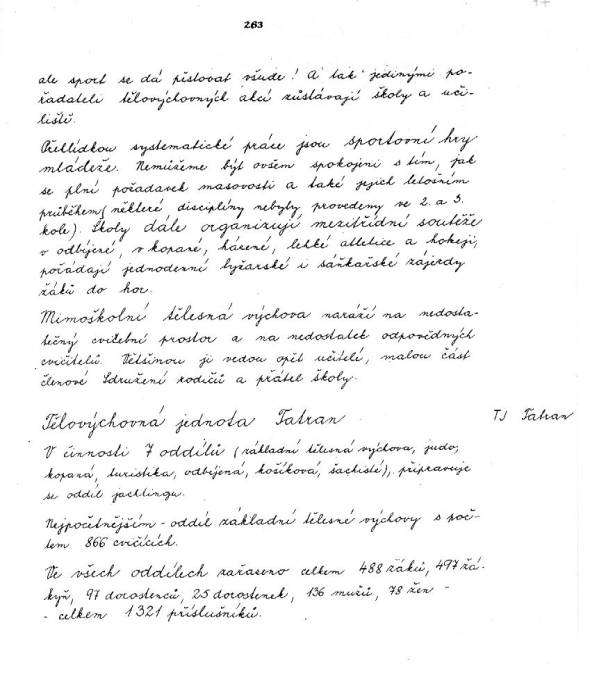 263
ale sport se dá pěstovat všude! A tak jedinými po-
řadateli tělovýchovných akcí zůstávají školy a uči-
liště.
Přehlídkou systematické práce jsou sportovní hry
mládeže. Nemůžeme být ovšem spokojeni s tím, jak
se plní požadavek masovosti a také jejich letošním
průběhem (některé disciplíny nebyly provedeny ve 2. a 3.
kole). Školy dále organizují mezitřídní soutěže
v odbíjené, v kopané, házené, lehké atletice a hokeji,
pořádají jednodenní lyžařské i sáňkařské zájezdy
žáků do hor.
Mimoškolní tělesná výchova naráží na nedosta-
tečný cvičební prostor a na nedostatek odpovědných
cvičitelů. Většinou ji vedou opět učitelé, malou část
členové Sdružení rodičů a přátel školy.
Tělovýchovná jednota Tatran
TJ Tatran
V činnosti 7 oddílů (základní tělesná výchova, judo,
kopaná, turistika, odbíjená, košíková, šachisté), připravuje
se oddíl jachtingu.
Nejpočetnějším - oddíl základní tělesné výchovy s poč-
tem 866 cvičících.
Ve všech oddílech zařazeno celkem 488 žáků, 497 žá-
kyň, 97 dorostenců, 25 dorostenek, 136 mužů, 78 žen -
- celkem 1321 příslušníků.